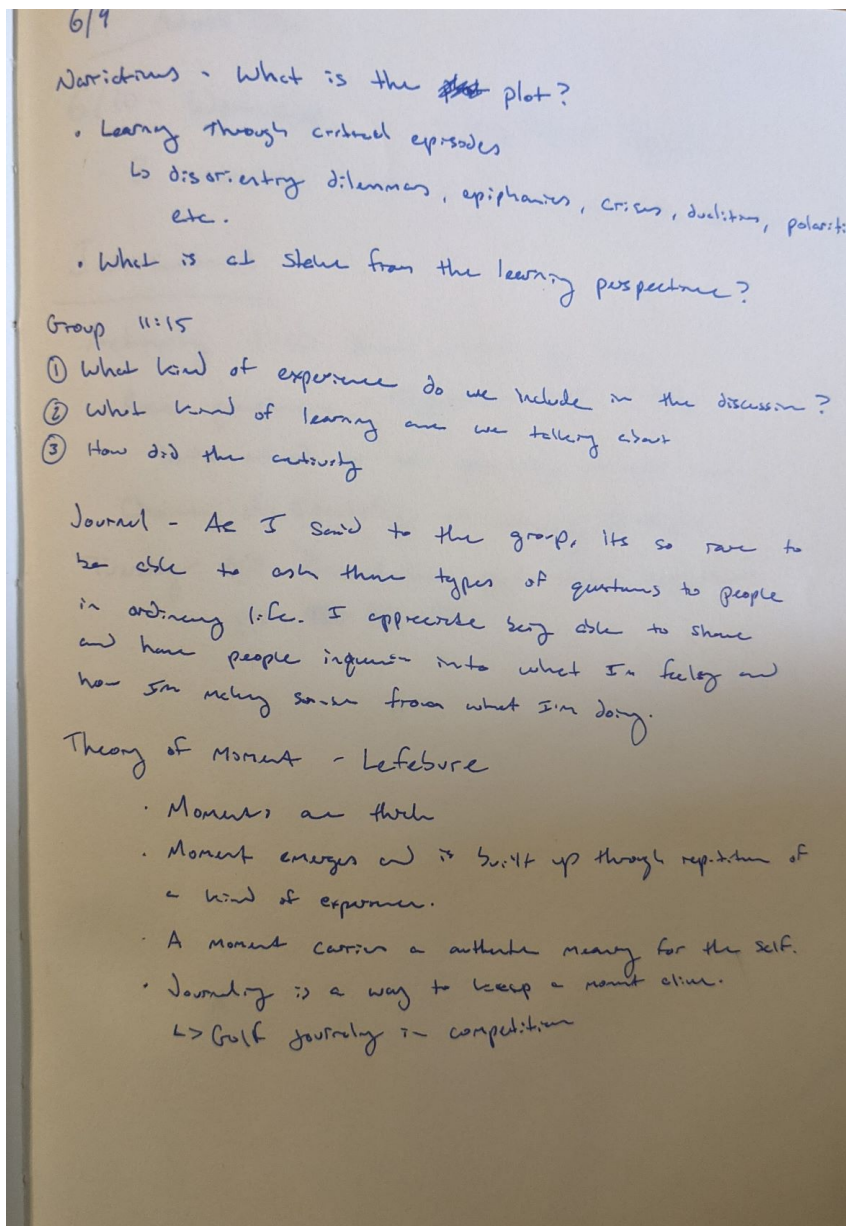 6/9
- What is the plot?
• Learning through critical episodes
↳ disorientry dilemmas, epiphanies, crises, dualities, polariti
etc.
• What is at stake from the learning perspective?
Group 11:15
① What kind of experience do we include in the discussion?
② What kind of learning are we talking about
③ How did the activity
Journal - As I said to the group, its so rare to
be able to ask these types of questions to people
in ordinary life. I appreciate being able to share
and have people inquire into what I'm feeling and
how I'm making sense from what I'm doing.
Theory of Moment - Lefebure
• Moments are thick
• Moment emerges and is built up through repitition of
a kind of experience.
• A moment carries a authentic meaning for the self.
• Journaling is a way to keep a moment alive.
↳ Golf journaling in competition